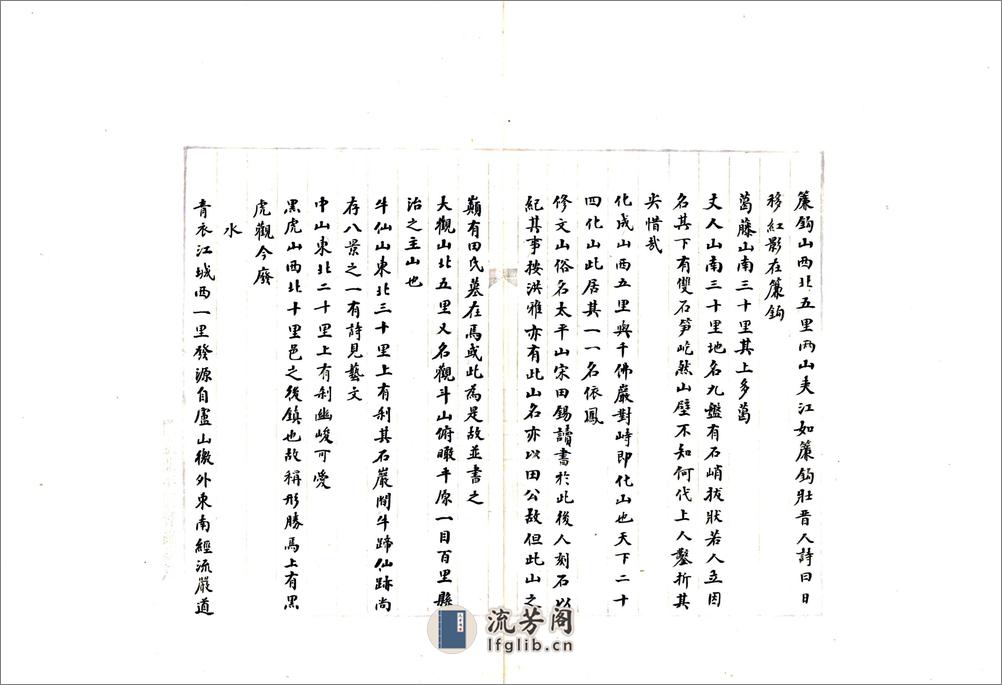 簾鈎山西北五里两山夹江如簾鈎壯晋人詩曰日
移紅影在簾鈎
葛藤山南三十里其上多葛
丈人山南三十里地名九盤有石峭拔狀若人立因
名其下有雙石笋屹然山壁不知何代上人鑿折其
尖惜哉
化成山西五里與千佛巖對峙即化山也天下二十
四化山此居其一一名依鳳
修文山俗名太平山宋田錫讀書於此後人刻石以
紀其事按洪雅亦有此山名亦以田公故但此山之
巔有田氏墓在焉或此為是故並書之
大觀山北五里又名觀斗山俯瞰平原一目百里縣
治之主山也
牛仙山東北三十里上有刹其石巖間牛蹄仙跡尚
存八景之一有詩見藝文
中山東北二十里上有刹幽峻可愛
黑虎山西北十里邑之後鎮也故稱形勝焉上有黑
虎觀今廢
水
青衣江城西一里發源自盧山徼外東南經流嚴道
流芳阁
lfglib.cn